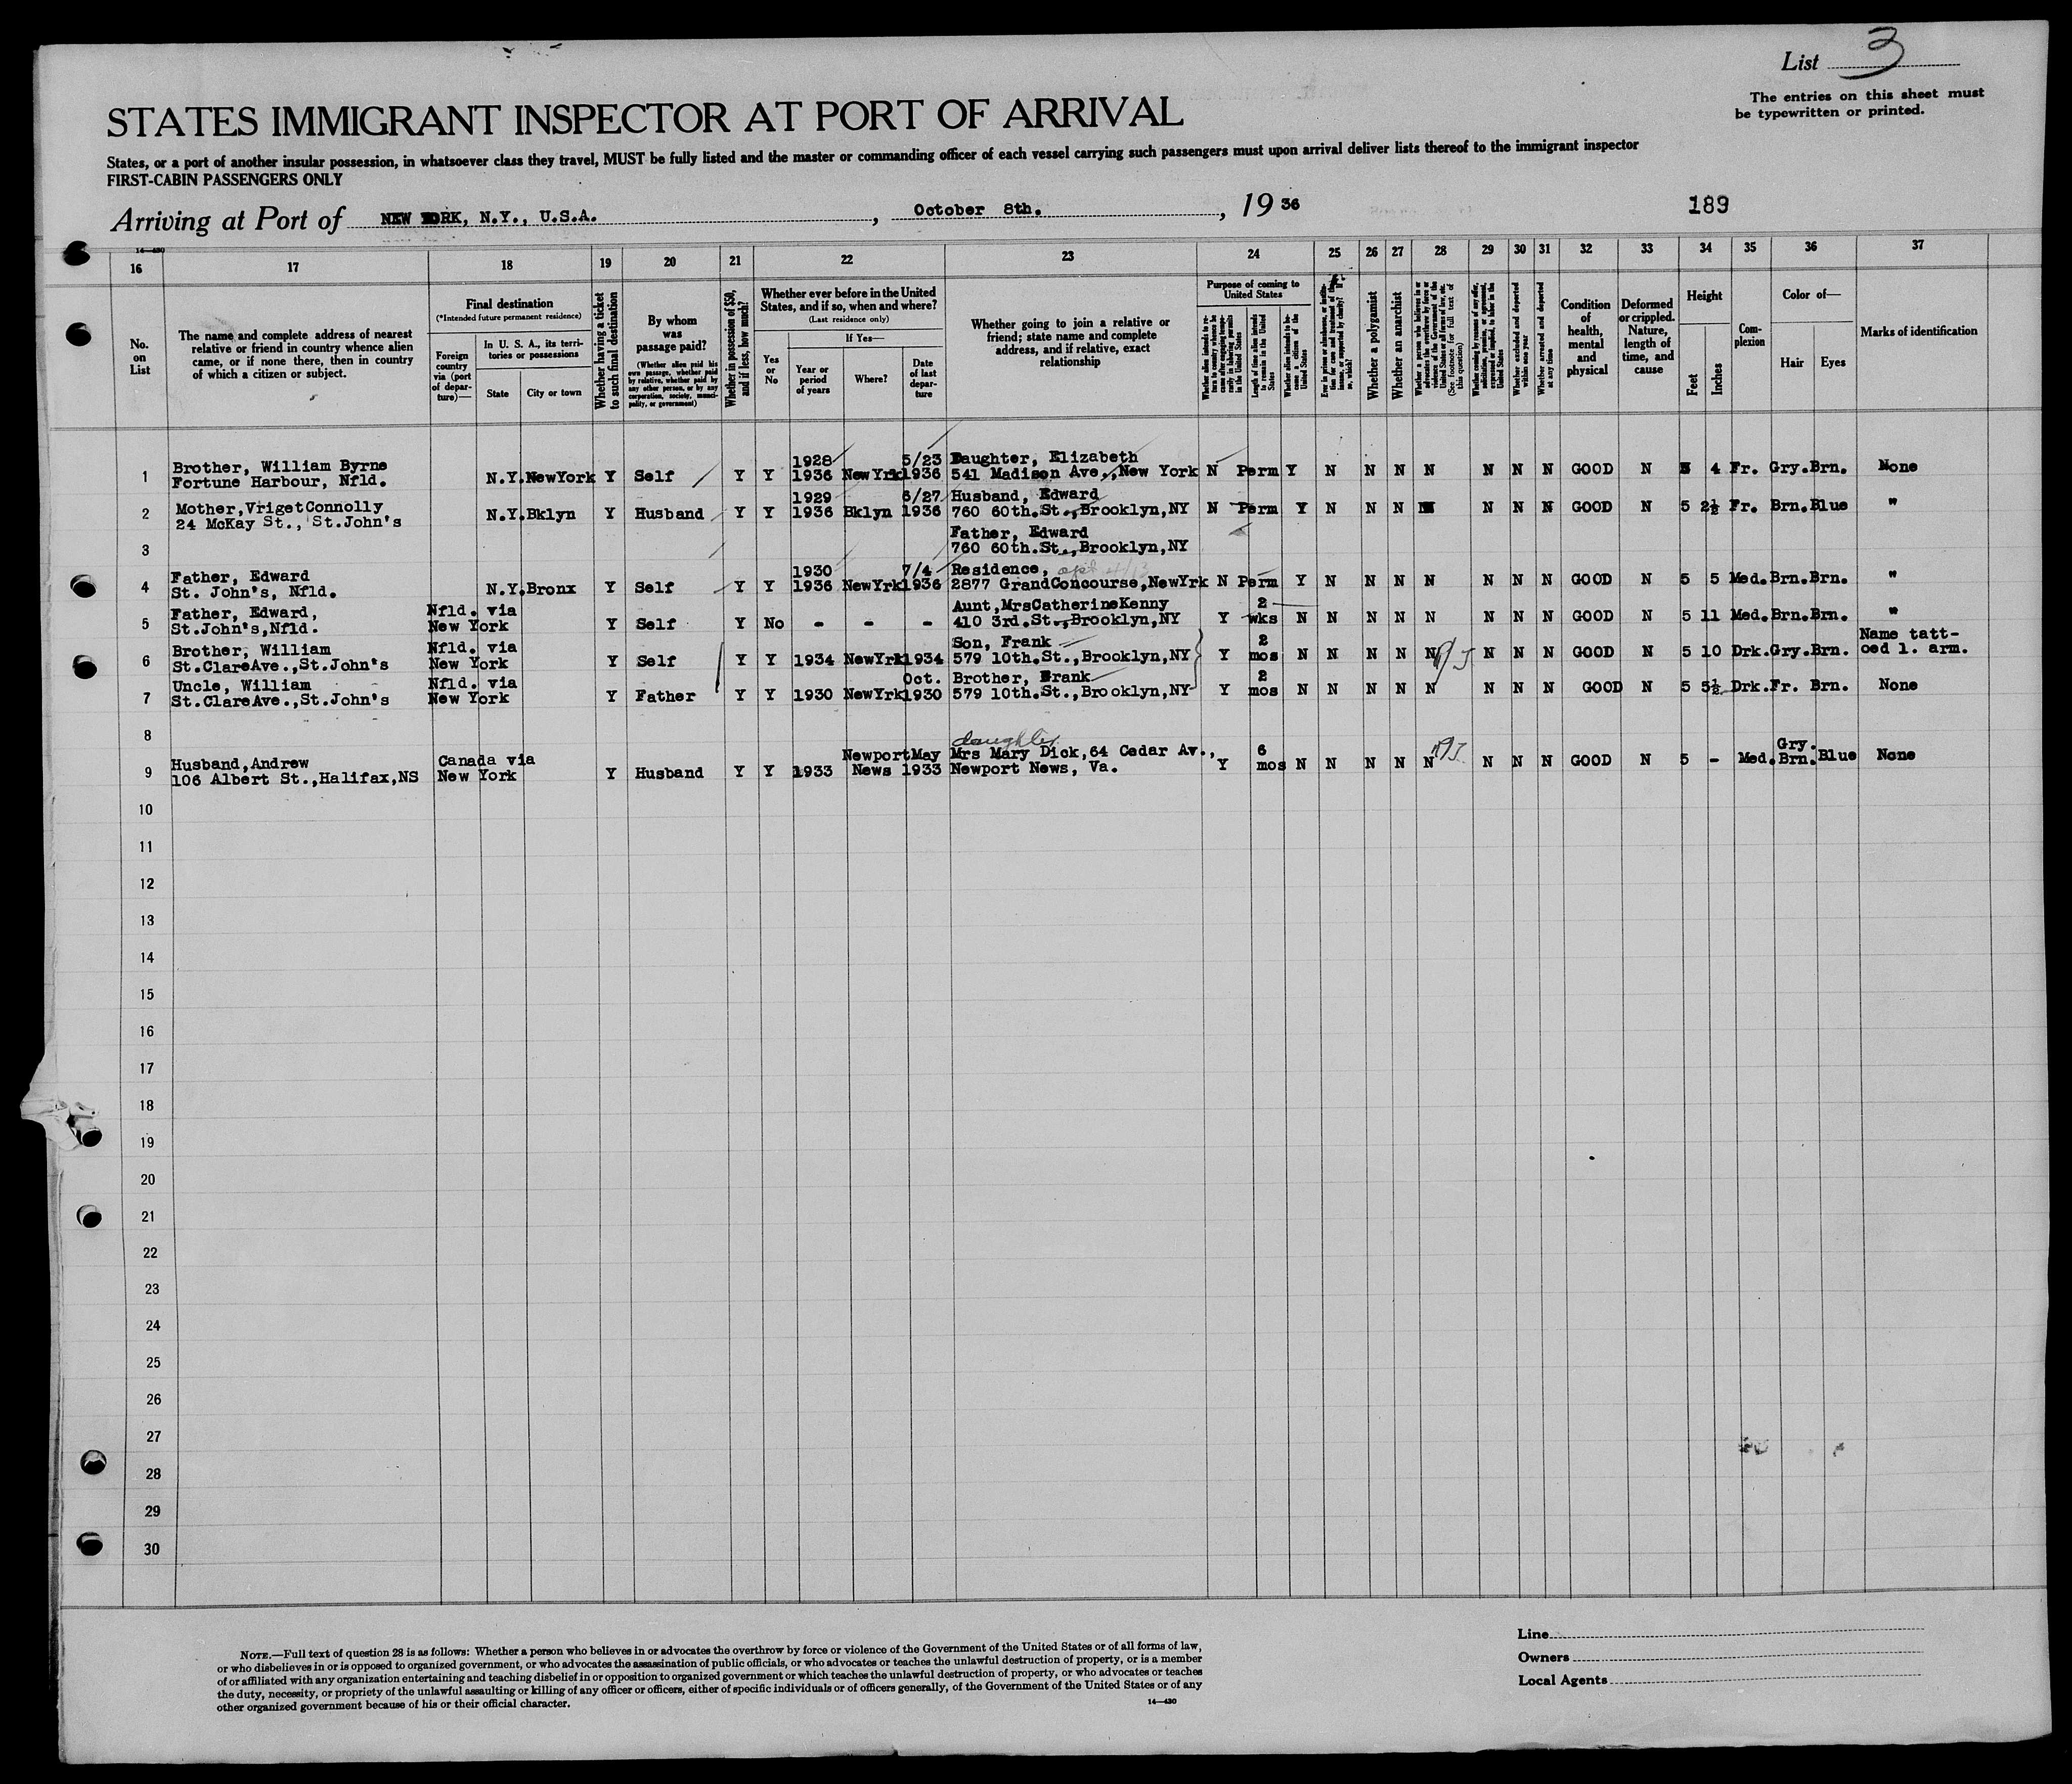 List 3
The entries on this sheet must
be typewritten or printed.
STATES IMMIGRANT INSPECTOR AT PORT OF ARRIVAL
States, or a port of another insular possession, in whatsoever class they travel, MUST be fully listed and the master or commanding officer of each vessel carrying such passengers must upon arrival deliver lists thereof to the immigrant inspector
FIRST-CABIN PASSENGERS ONLY
Arriving at Port of NEW YORK, N.Y., U.S.A. , October 8th. , 19 36
189
14—430
16 17 18 19 20 21 22 23 24 25 26 27 28 29 30 31 32 33 34 35 36 37
No. on List
The name and complete address of nearest relative or friend in country whence alien came, or if none there, then in country of which a citizen or subject.
Final destination
(*Intended future permanent residence)
Foreign country via (port of departure)—
In U. S. A., its territories or possessions
State City or town
Whether having a ticket to such final destination
By whom was passage paid?
(Whether alien paid his own passage, whether paid by relative, whether paid by any other person, or by any corporation, society, municipality, or government)
Whether in possession of $50, and if less, how much?
Whether ever before in the United States, and if so, when and where?
(Last residence only)
Yes or No
If Yes—
Year or period of years
Where?
Date of last departure
Whether going to join a relative or friend; state name and complete address, and if relative, exact relationship
Purpose of coming to United States
Length of time alien intends to remain in the United States
Whether alien intends to become a citizen of the United States
Whether a polygamist
Whether an anarchist
(See footnote for full text of this question)
Whether excluded and deported within one year
Whether arrested and deported at any time
Condition of health, mental and physical
Deformed or crippled. Nature, length of time, and cause
Height
Feet Inches
Complexion
Color of—
Hair Eyes
Marks of identification
1 Brother, William Byrne Fortune Harbour, Nfld. N.Y. NewYork Y Self Y Y 1928 1936 NewYrk 5/23 1936 Daughter, Elizabeth 541 Madison Ave., New York N Perm Y N N N N N N N GOOD N 5 4 Fr. Gry. Brn. None
2 Mother, Vriget Connolly 24 McKay St., St.John's N.Y. Bklyn Y Husband Y Y 1929 1936 Bklyn 6/27 1936 Husband, Edward 760 60th.St., Brooklyn,NY N Perm Y N N N N N N N GOOD N 5 2½ Fr. Brn. Blue "
3 Father, Edward 760 60th.St., Brooklyn,NY
4 Father, Edward St. John's, Nfld. N.Y. Bronx Y Self Y Y 1930 1936 NewYrk 7/4 1936 Residence, 2877 GrandConcourse,NewYrk N Perm Y N N N N N N N GOOD N 5 5 Med. Brn. Brn. "
5 Father, Edward, St.John's,Nfld. Nfld. via New York Y Self Y No - - - Aunt,MrsCatherineKenny 410 3rd.St., Brooklyn,NY Y 2 wks N N N N N N N N GOOD N 5 11 Med. Brn. Brn. "
6 Brother, William St.ClareAve.,St.John's Nfld. via New York Y Self Y Y 1934 NewYrk 1934 Son, Frank 579 10th.St.,Brooklyn,NY Y 2 mos N N N N N N N N GOOD N 5 10 Drk. Gry. Brn. Name tatt- oed l. arm.
7 Uncle, William St.ClareAve.,St.John's Nfld. via New York Y Father Y Y 1930 NewYrk Oct. 1930 Brother, Frank 579 10th.St.,Brooklyn,NY Y 2 mos N N N N N N N N GOOD N 5 5½ Drk. Fr. Brn. None
8
daughter
9 Husband,Andrew 106 Albert St.,Halifax,NS Canada via New York Y Husband Y Y 1933 Newport News May 1933 Mrs Mary Dick,64 Cedar Av., Newport News, Va. Y 6 mos N N N N N N N N GOOD N 5 - Med. Gry. Brn. Blue None
10
11
12
13
14
15
16
17
18
19
20
21
22
23
24
25
26
27
28
29
30
NOTE.—Full text of question 28 is as follows: Whether a person who believes in or advocates the overthrow by force or violence of the Government of the United States or of all forms of law,
or who disbelieves in or is opposed to organized government, or who advocates the assassination of public officials, or who advocates or teaches the unlawful destruction of property, or is a member
of or affiliated with any organization entertaining and teaching disbelief in or opposition to organized government or which teaches the unlawful destruction of property, or who advocates or teaches
the duty, necessity, or propriety of the unlawful assaulting or killing of any officer or officers, either of specific individuals or of officers generally, of the Government of the United States or of any
other organized government because of his or their official character.
14—430
Line
Owners
Local Agents